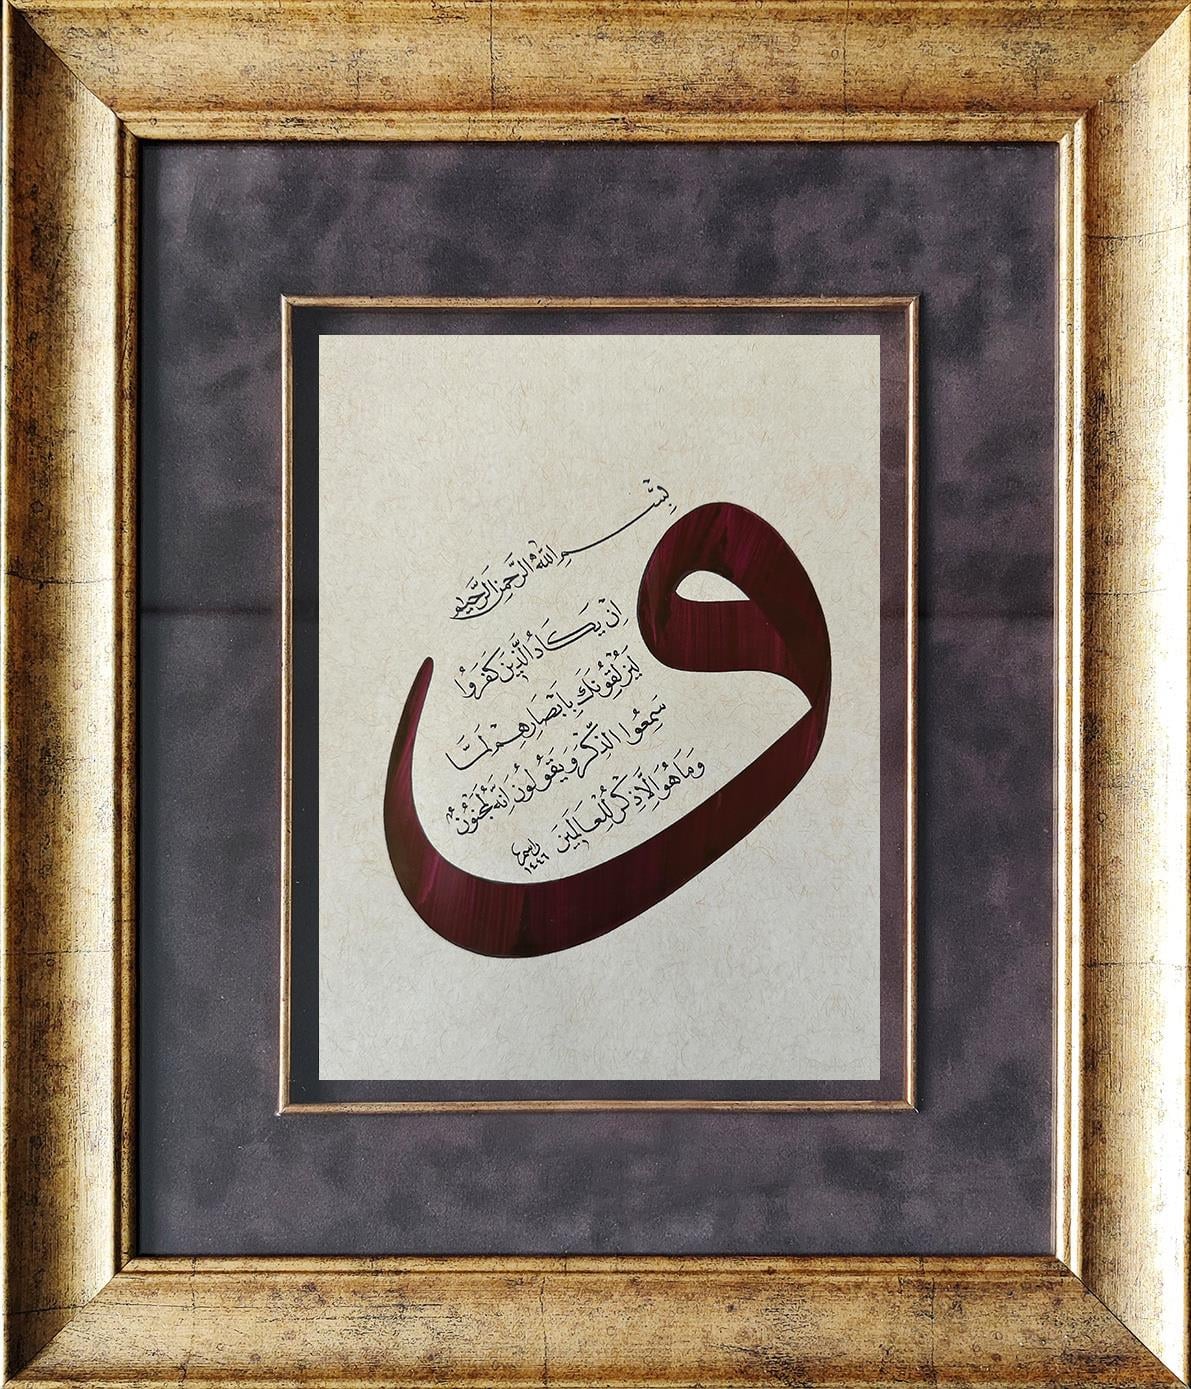 و
بِسْمِ اللهِ الرَّحْمٰنِ الرَّحِيمِ
اِنْ يَكَادُ الَّذِينَ كَفَرُوا
لَيُزْلِقُونَكَ بِاَبْصَارِهِمْ لَمَّا
سَمِعُوا الذِّكْرَ وَيَقُولُونَ اِنَّهُ لَمَجْنُونٌ
وَمَا هُوَ اِلَّا ذِكْرٌ لِلْعَالَمِينَ
١٤٤٦